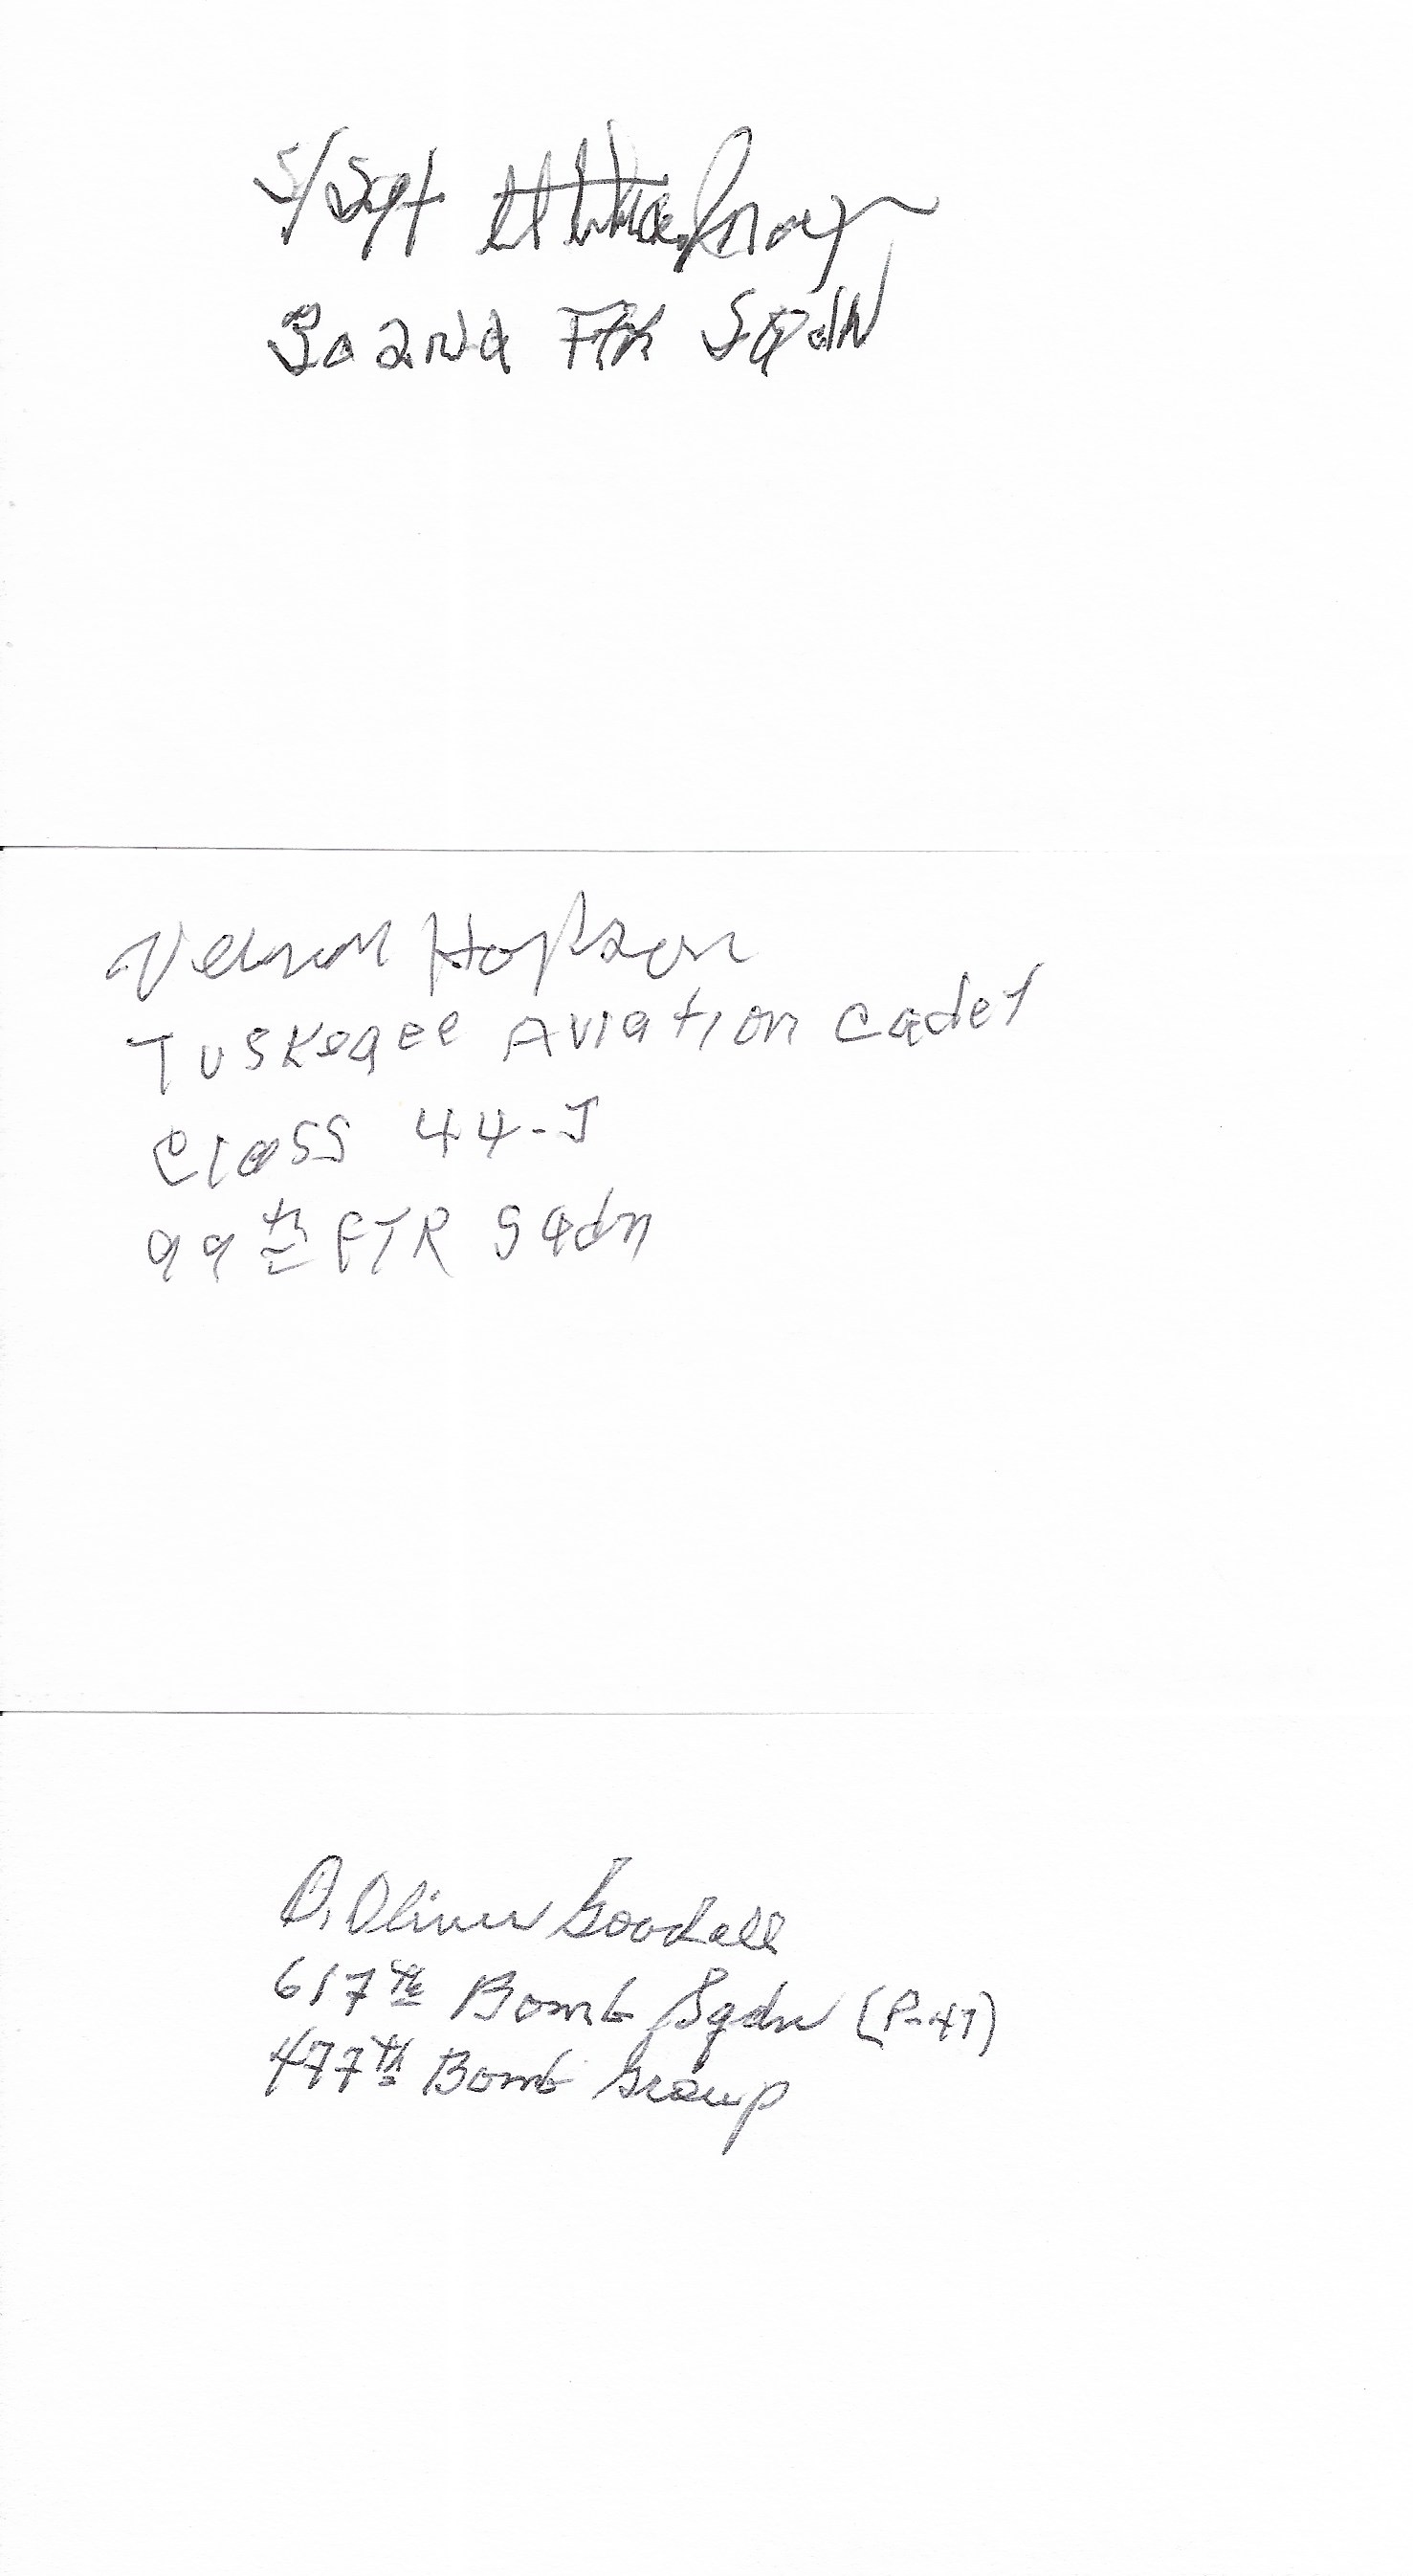 S/Sgt
302nd Ftr Sqdn
Nelson Hopson
Tuskegee Aviation Cadet
Class 44-J
99th FTR Sqdn
O. Oliver Goodall
617th Bomb Sqdn (P-47)
477th Bomb Group